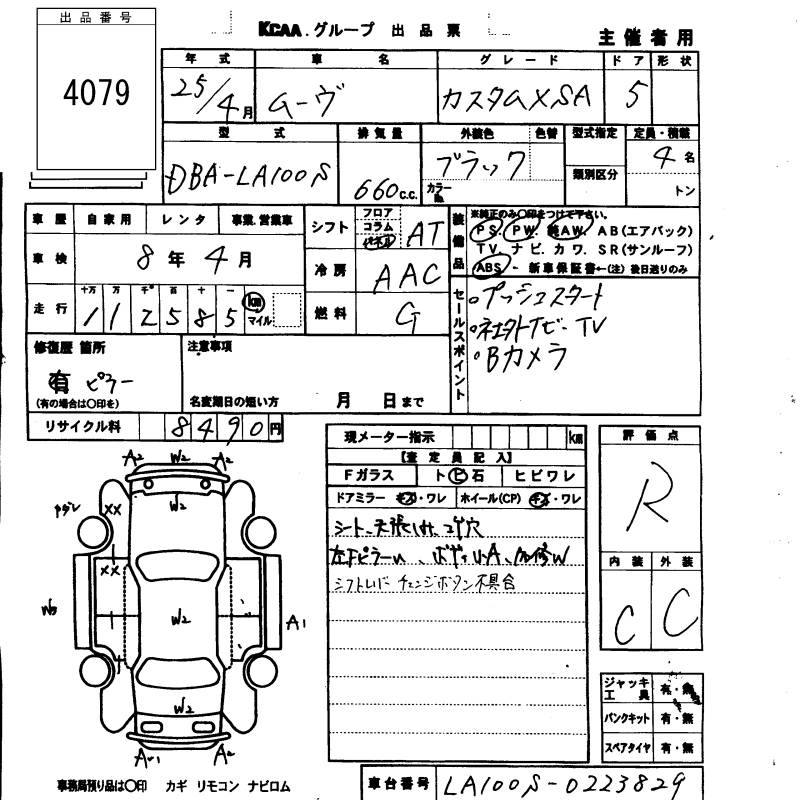 出品番号
4079
KCAA.グループ 出品票
主催者用
年式 車名 グレード ドア 形状
25/4月 ムーヴ カスタムXSA 5
型式 排気量 外装色 色替 型式指定 定員・積載
DBA-LA100S 660c.c. ブラック カラーNo. 類別区分 4名
トン
車歴 自家用 レンタ 事業.営業車
車検 8年4月
走行 十万 万 千 百 十 一
112585 km マイル
シフト フロア コラム パネル AT
冷房 AAC
燃料 G
装備品
※純正のみ〇印をつけて下さい。
PS. PW. 純AW. AB(エアバック)
TV. ナビ. カワ. SR(サンルーフ)
ABS - 新車保証書←(注)後日送りのみ
セールスポイント
・プッシュスタート
・社外ナビ-TV
・Bカメラ
修復歴 箇所
有 ピラー
(有の場合は〇印を)
注意事項
名変期日の短い方 月 日まで
リサイクル料 8490円
現メーター指示 km
【査定員記入】
Fガラス ト ビ 石 ヒビワレ
ドアミラー キズ・ワレ ホイール(CP) キズ・ワレ
シート、天張り
左FピラーW
シフトレバー チェンジボタン不具合
評価点
R
内装 外装
C C
ジャッキ工具 有・無
パンクキット 有・無
スペアタイヤ 有・無
A2 W2 A2
W2
XX
XX
W3 W2 A1
W2
A1 A2
事務局預り品は〇印 カギ リモコン ナビロム
車台番号 LA100S-0223829